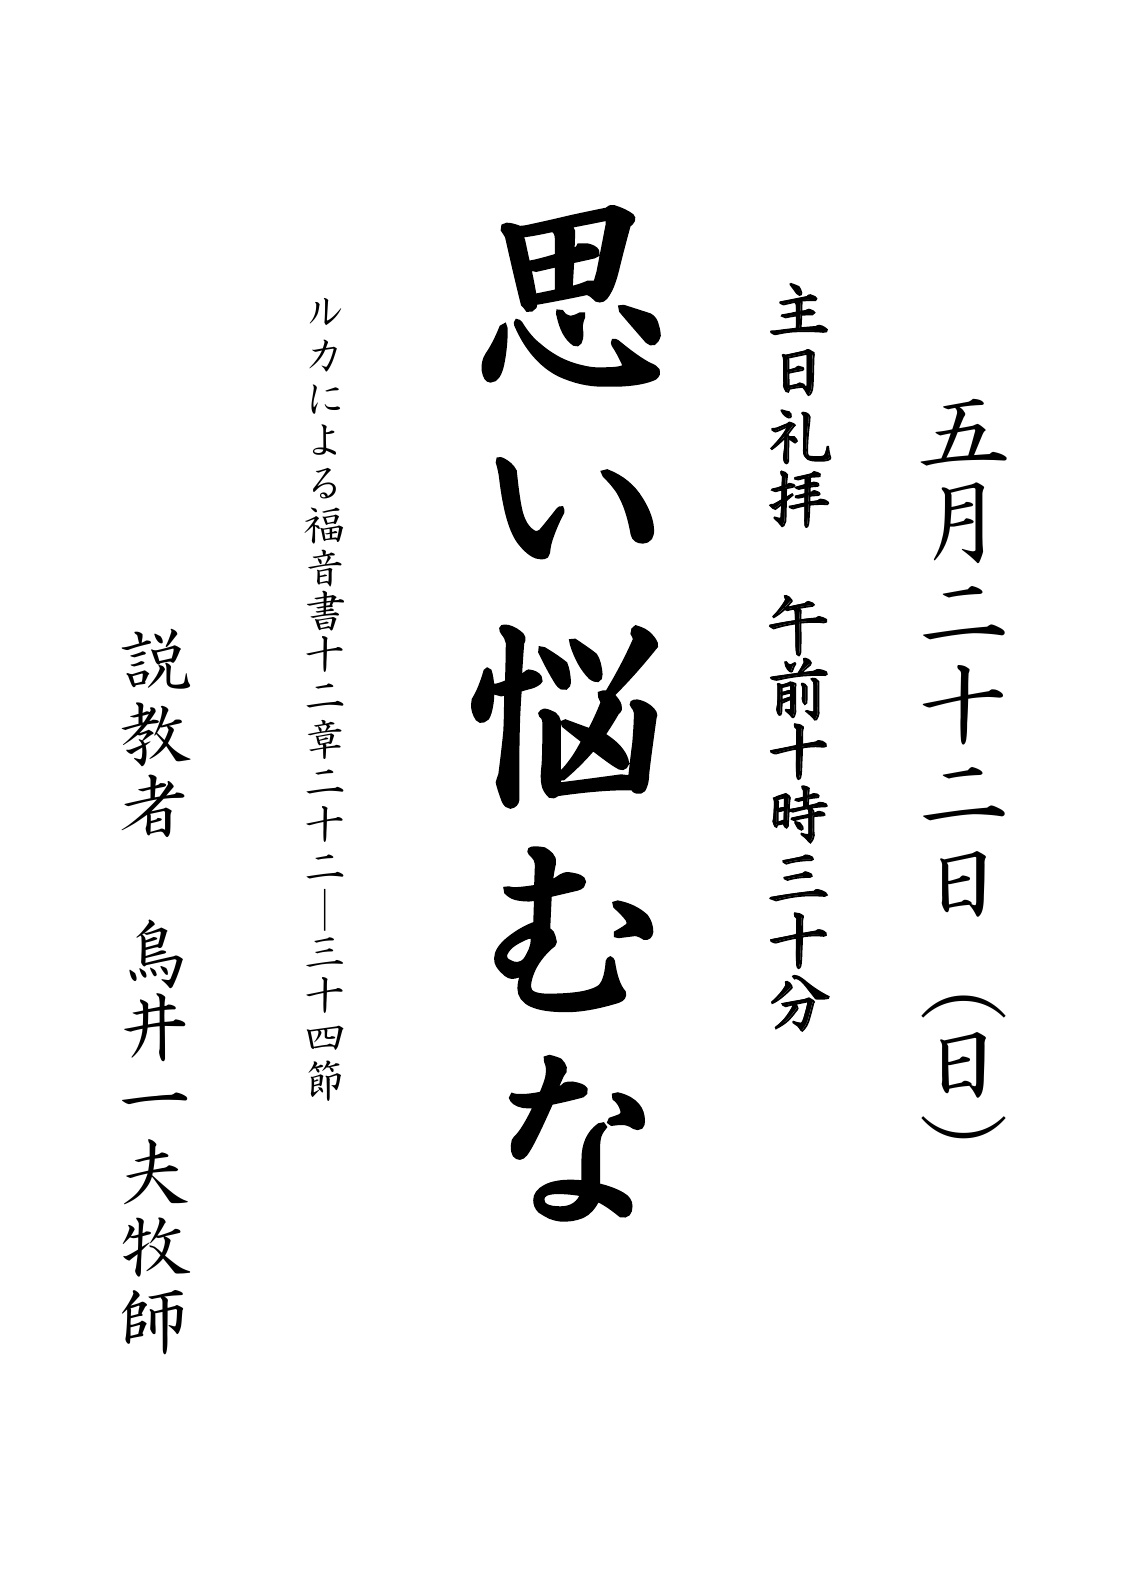 五月二十二日　（日）
主日礼拝　午前十時三十分
思い悩むな
ルカによる福音書十二章二十二―三十四節
説教者　鳥井一夫牧師